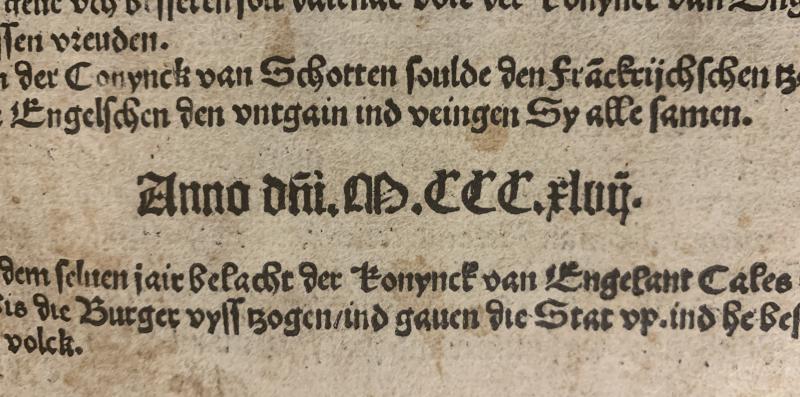 ssen vreuden.
der Conynck van Schotten soulde den Frāckrijchschen
Engelschen den vntgain ind veingen Sy alle samen.
Anno dñi. M.CCC.xlvij.
dem seluen jair belacht der Konynck van Engelant Cales
die Burger vyss tzogen/ind gauen die Stat vp. ind he
volck.